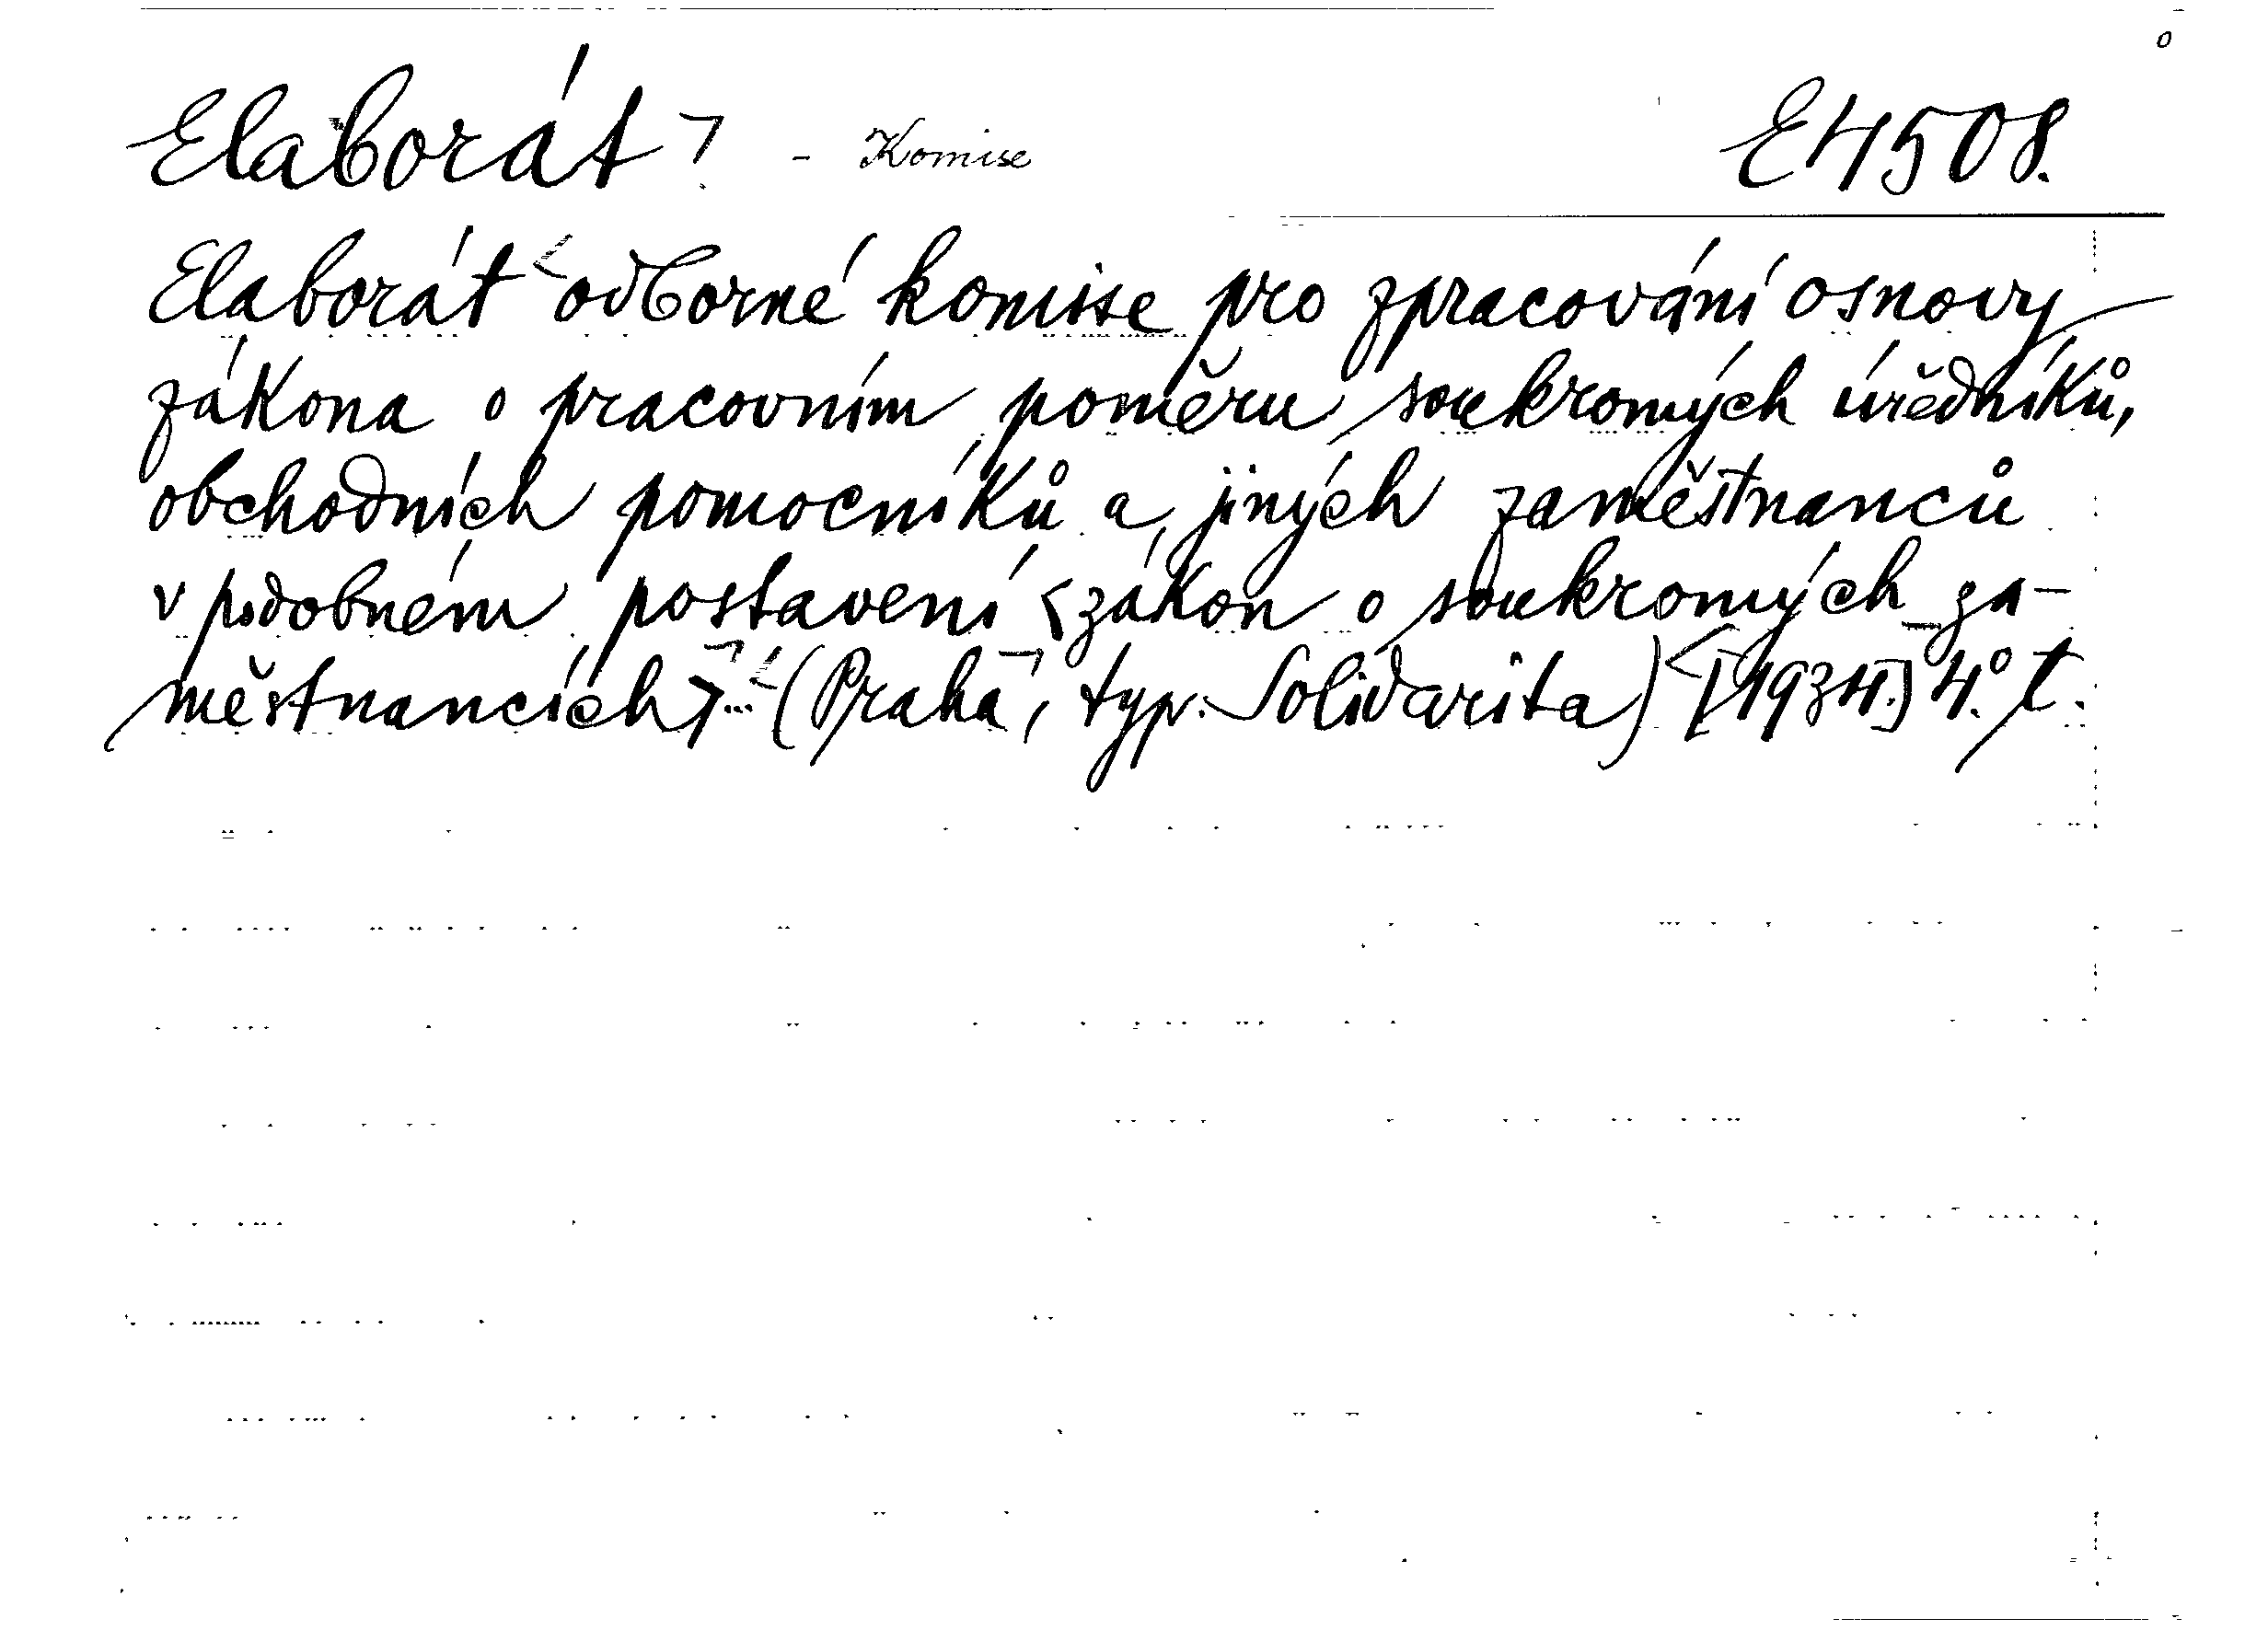 Elaborát - Komise E4508.
Elaborát odborné komisse pro zpracování osnovy
zákona o pracovním poměru soukromých úředníků,
obchodních pomocníků a jiných zaměstnanců
v podobném postavení <zákon o soukromých za-
městnancích>... (Praha, typ. Solidarita) [1934.] 4.° t.